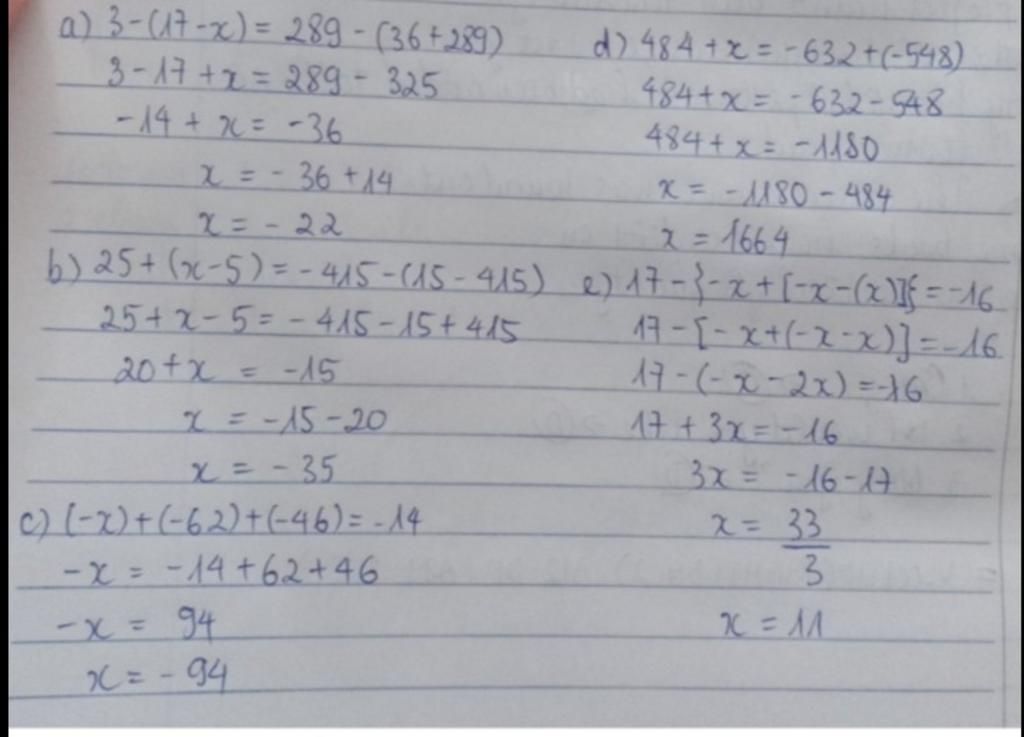 a) 3-(17-x) = 289-(36+289)
3-17+x = 289-325
-14+x = -36
x = -36+14
x = -22
b) 25+(x-5) = -415-(15-415)
25+x-5 = -415-15+415
20+x = -15
x = -15-20
x = -35
c) (-x)+(-62)+(-46) = -14
-x = -14+62+46
-x = 94
x = -94
d) 484+x = -632+(-548)
484+x = -632-548
484+x = -1180
x = -1180-484
x = 1664
e) 17-{-x+[-x-(x)]} = -16
17-[-x+(-x-x)] = -16
17-(-x-2x) = -16
17+3x = -16
3x = -16-17
x = 33/3
x = 11